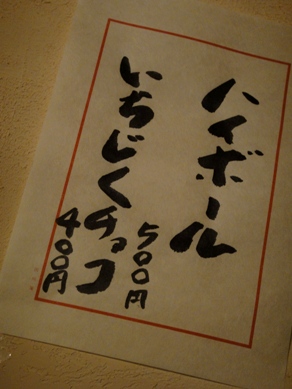 ハイボール
500円
いちじくチョコ
400円